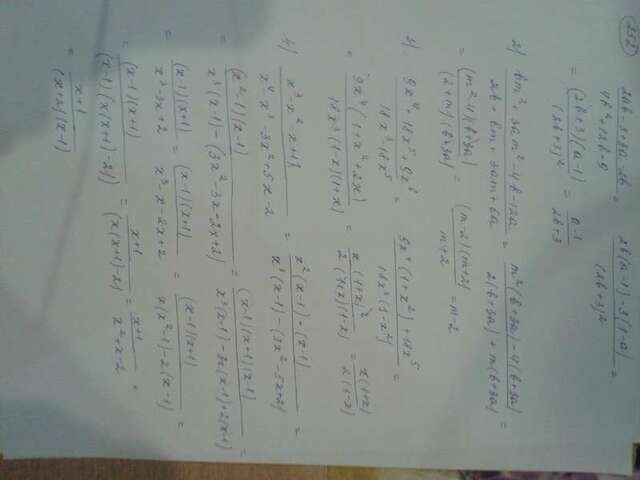 252
2ab-3+3a-2b / 4b²+12b+9 = 2b(a-1)-3(1-a) / (2b+3)² =
= (2b+3)(a-1) / (2b+3)² = a-1 / 2b+3
2) bm²+3am²-4b-12a / 2b+bm+3am+6a = m²(b+3a)-4(b+3a) / 2(b+3a)+m(b+3a) =
= (m²-4)(b+3a) / (2+m)(b+3a) = (m-2)(m+2) / m+2 = m-2
3) 9x⁴+18x⁵+9x⁶ / 18x³-18x⁵ = 9x⁴(1+x²)+18x⁵ / 18x³(1-x²) =
= 9x⁴(1+x²+2x) / 18x³(1-x)(1+x) = x(1+x)² / 2(1+x)(1-x) = x(1+x) / 2(1-x)
4) x³-x²-x+1 / x⁴-x³-3x²+5x-2 = x²(x-1)-(x-1) / x³(x-1)-(3x²-5x+2) =
= (x²-1)(x-1) / x³(x-1)-(3x²-3x-2x+2) = (x-1)(x+1)(x-1) / x³(x-1)-3x(x-1)+2(x-1) =
= (x-1)(x+1) / x³-3x+2 = (x-1)(x+1) / x³-x-2x+2 = (x-1)(x+1) / x(x²-1)-2(x-1) =
= (x-1)(x+1) / (x-1)(x(x+1)-2) = x+1 / (x(x+1)-2) = x+1 / x²+x-2 =
= x+1 / (x+2)(x-1)